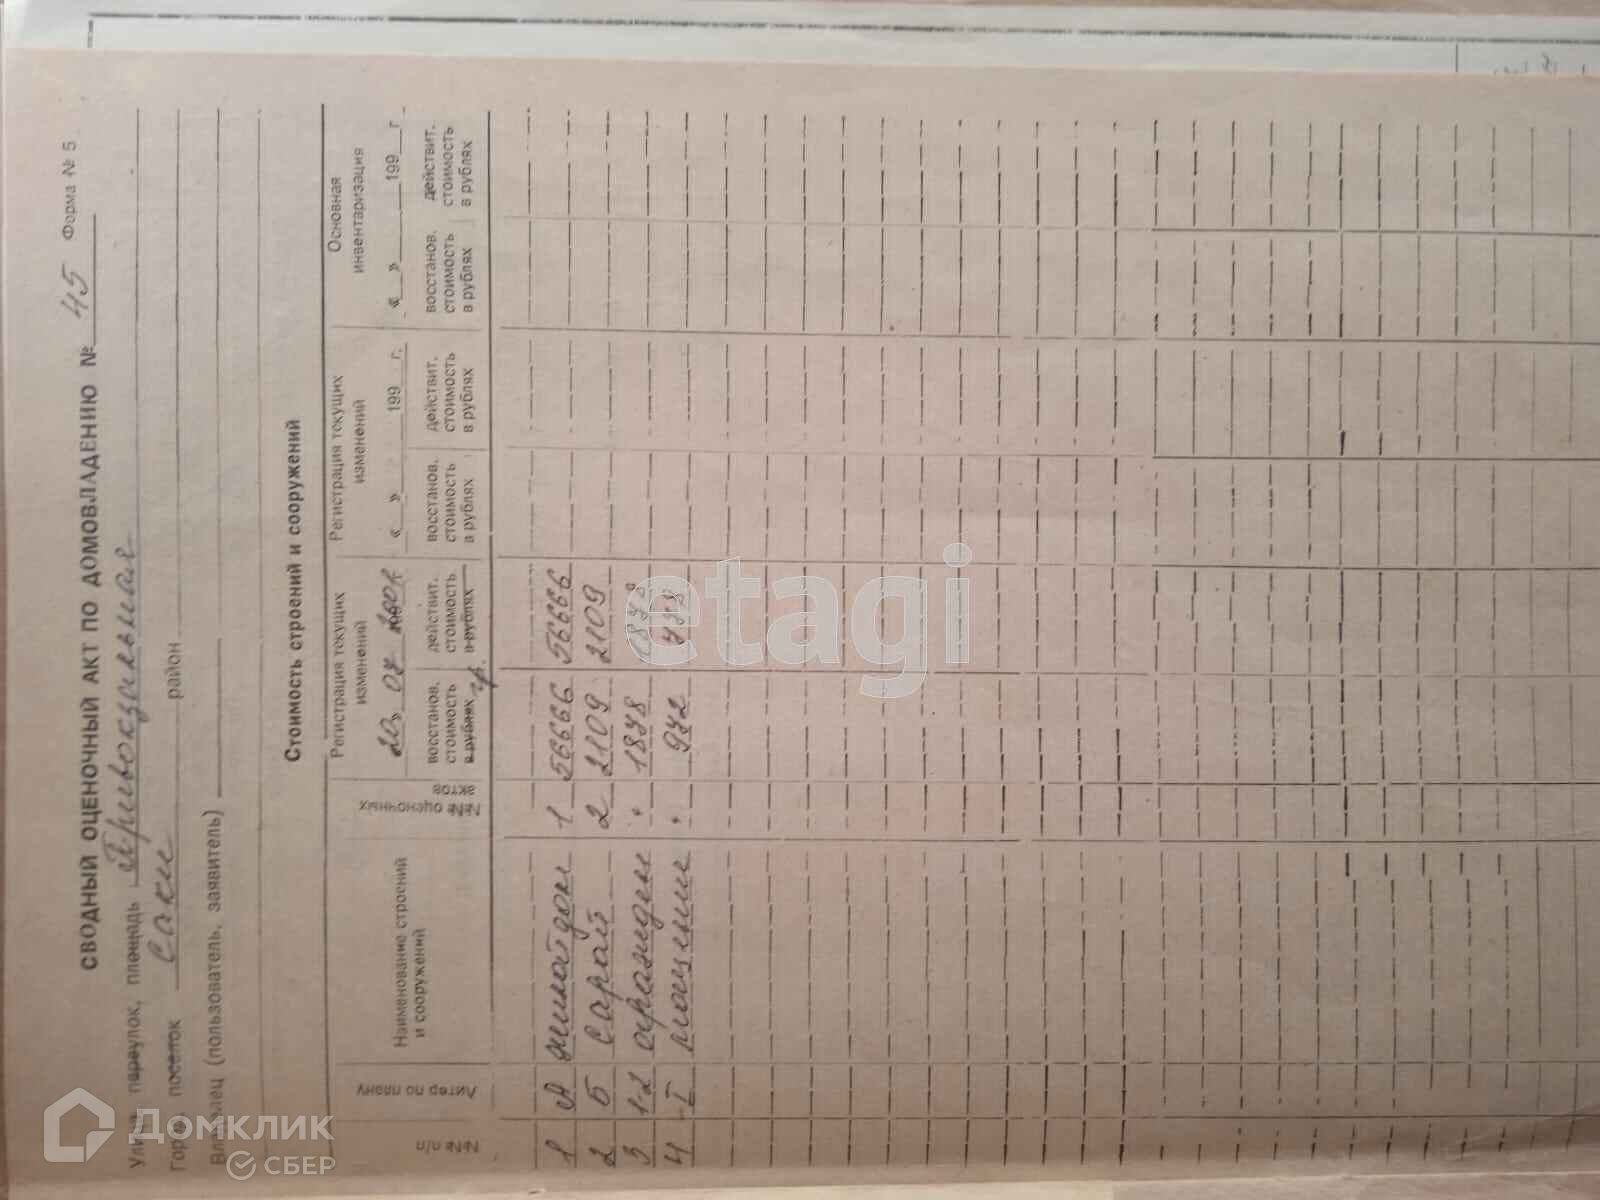 Форма № 5
СВОДНЫЙ ОЦЕНОЧНЫЙ АКТ ПО ДОМОВЛАДЕНИЮ № 45
Улица, переулок, площадь Привокзальная
Город, поселок Саки район
Владелец (пользователь, заявитель)
Стоимость строений и сооружений
№№ п/п
Литер по плану
Наименование строений и сооружений
№№ оценочных актов
Регистрация текущих изменений
20 07
восстанов. стоимость в рублях гр.
действит. стоимость в рублях
Регистрация текущих изменений
« » 199 г.
восстанов. стоимость в рублях
действит. стоимость в рублях
Основная инвентаризация
« » 199 г.
восстанов. стоимость в рублях
действит. стоимость в рублях
1 А жилой дом 1 56666 56666
2 Б Сарай 2 2109 2109
3 1-2 ограждения " 1878 1878
4 I мощение " 972 778
etagi
Домклик
СБЕР